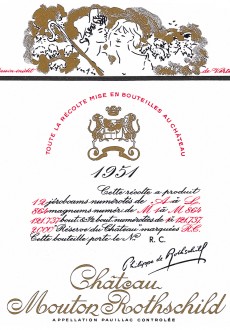 de Vertès
TOUTE LA RÉCOLTE MISE EN BOUTEILLES AU CHÂTEAU
1951
Cette récolte a produit
jéroboams numérotés de A à L.
magnums numér. de M 1 à M 864
bout. & ½ bout. numérotées de 1 à 121.737
2000 "Réserve du Château" marquées R.C.
Cette bouteille porte le N.º R. C.
Philippe de Rothschild
Château
Mouton Rothschild
APPELLATION PAUILLAC CONTROLÉE